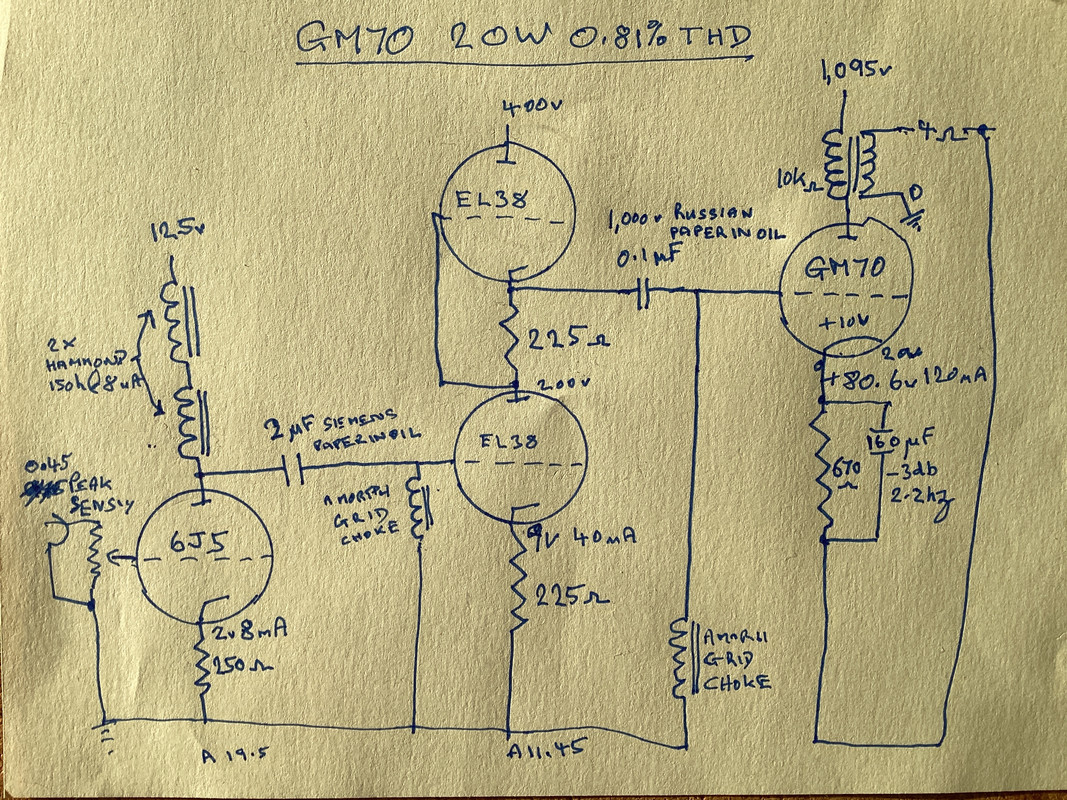 GM70 20W 0.81% THD
1,095v
400v
4Ω
EL38
10kΩ
0
1,000v RUSSIAN
PAPER IN OIL
0.1µF
125v
GM70
+10v
225Ω
2X
HAMMOND
150h@8mA
20w
+80.6v 120mA
200v
2µF SIEMENS
PAPER IN OIL
EL38
160µF
-3db
2.2hz
670
Ω
0.45
PEAK
AMORPH
GRID
CHOKE
6J5
9v 40mA
225Ω
2v8mA
250Ω
GRID
CHOKE
A 19.5
A11.45